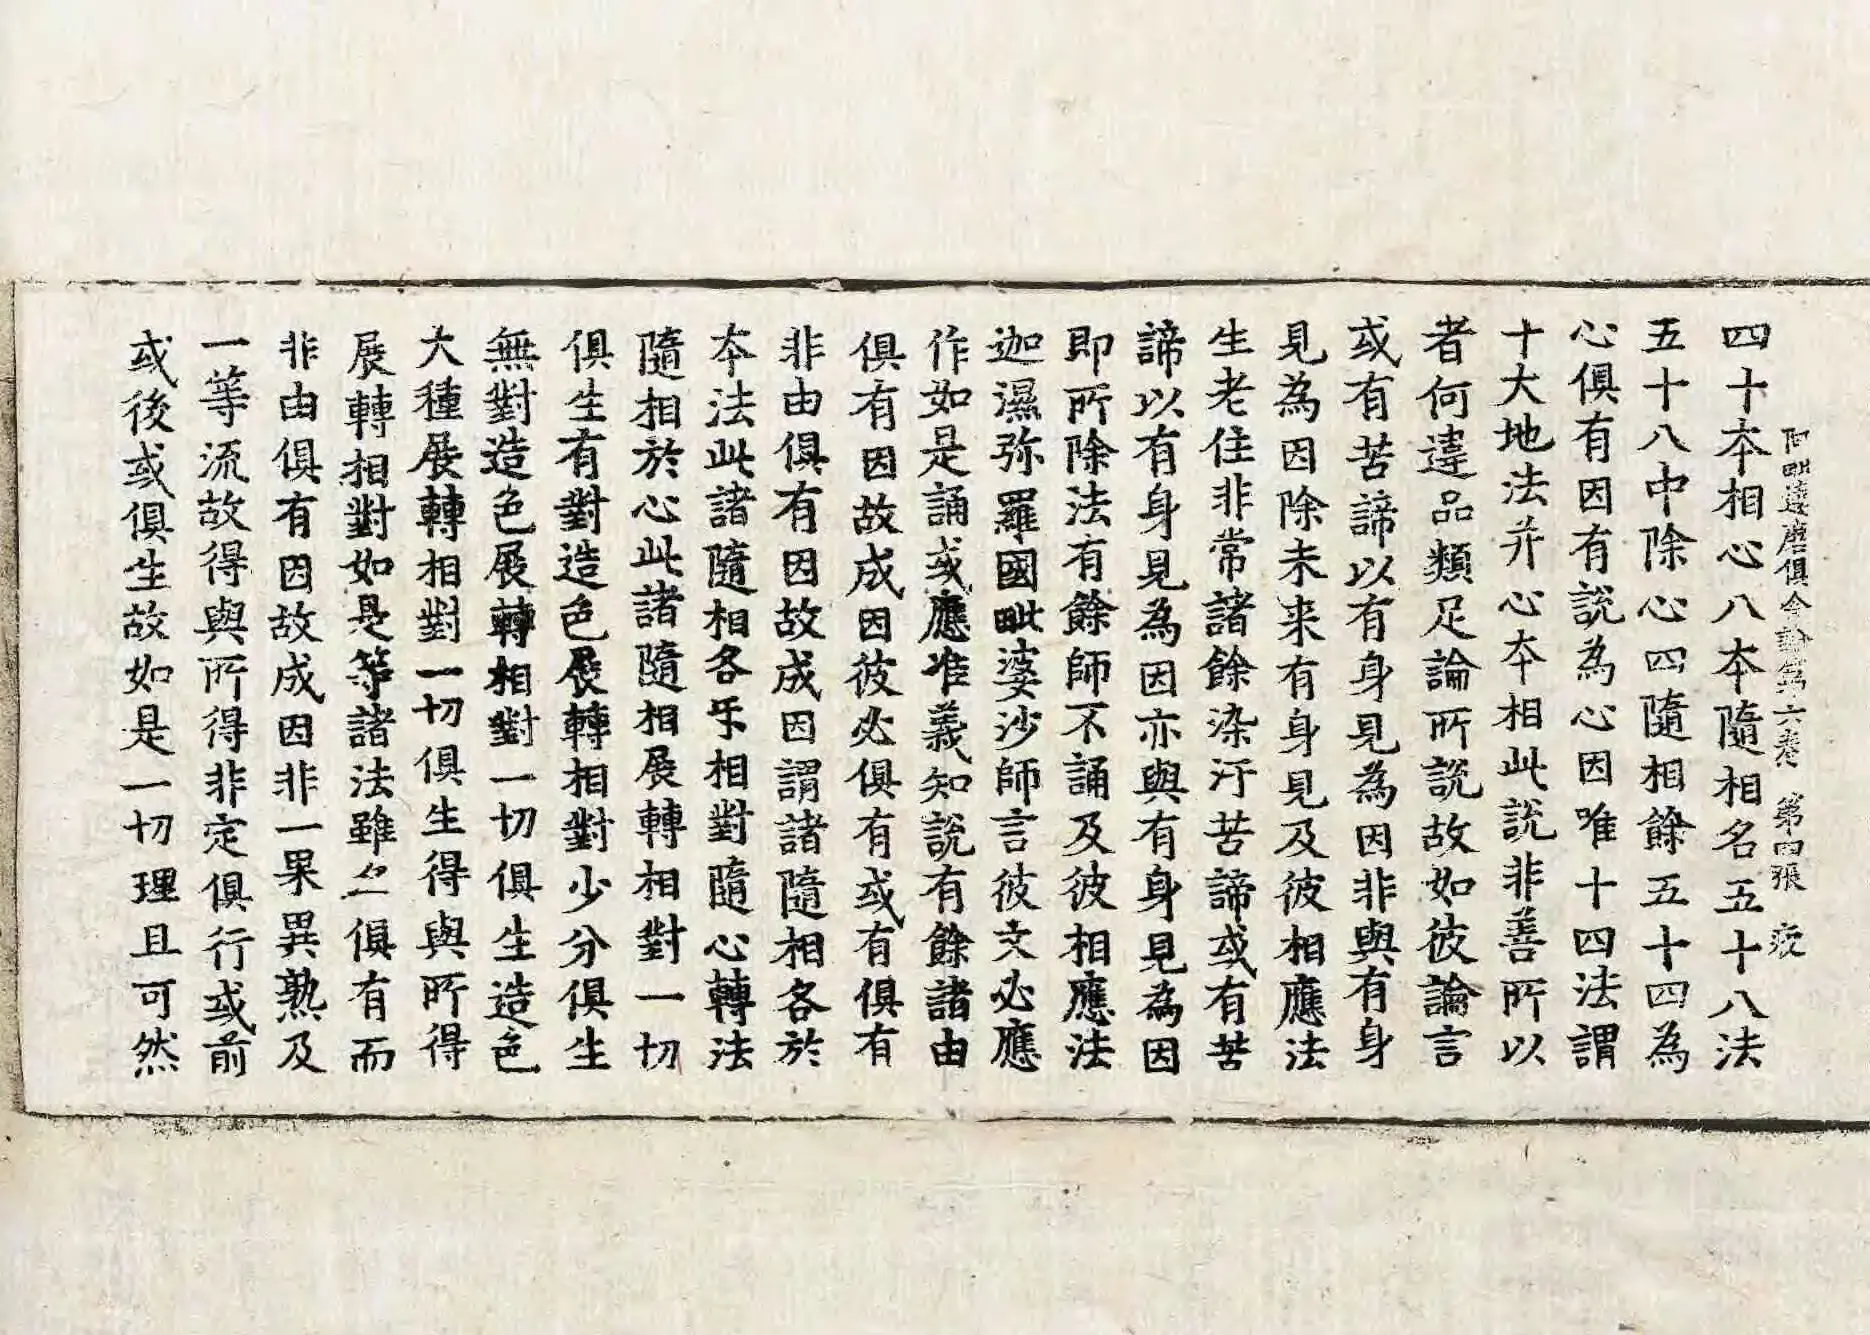 阿毗達磨俱舍論第六卷 第四張 疲
四十夲相心八夲隨相名五十八法
五十八中除心四隨相餘五十四為
心俱有因有說為心因唯十四法謂
十大地法并心夲相此說非善所以
者何違品類足論所說故如彼論言
或有苦諦以有身見為因非與有身
見為因除未来有身見及彼相應法
生老住非常諸餘染汙苦諦或有苦
諦以有身見為因亦與有身見為因
即所除法有餘師不誦及彼相應法
迦濕弥羅國毗婆沙師言彼文必應
作如是誦或應准義知說有餘諸由
俱有因故成因彼必俱有或有俱有
非由俱有因故成因謂諸隨相各於
夲法此諸隨相各乐相對隨心轉法
隨相於心此諸隨相展轉相對一切
俱生有對造色展轉相對少分俱生
無對造色展轉相對一切俱生造色
大種展轉相對一切俱生得與所得
展轉相對如是等諸法雖亡俱有而
非由俱有因故成因非一果異熟及
一等流故得與所得非定俱行或前
或後或俱生故如是一切理且可然